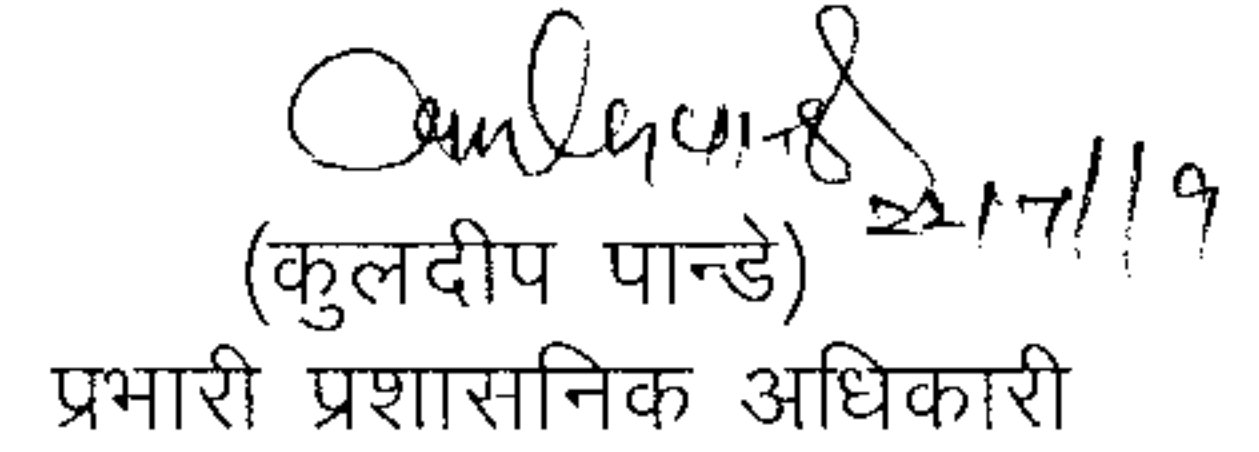 22/7/19
(कुलदीप पान्डे)
प्रभारी प्रशासनिक अधिकारी